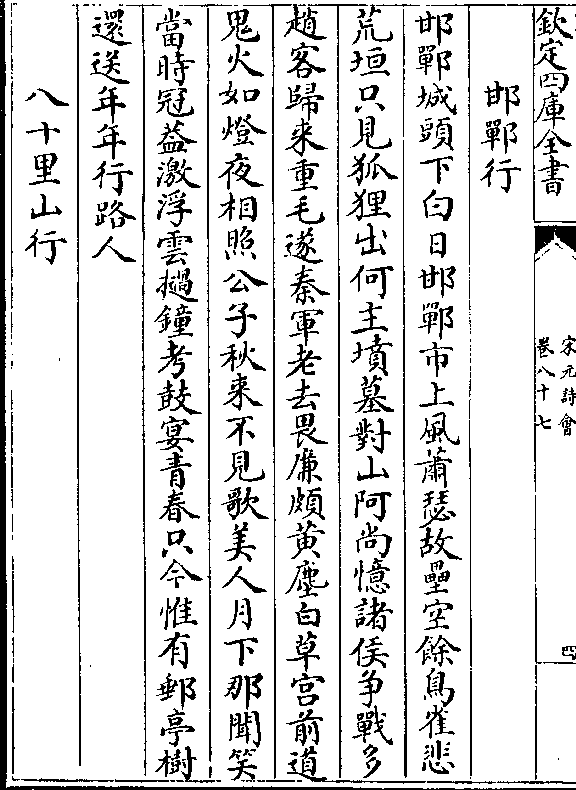 欽定四庫全書
宋元詩會
卷八十七
四
邯鄲行
邯鄲城頭下白日邯鄲市上風蕭瑟故壘空餘鳥雀悲
荒垣只見狐狸出何主墳墓對山阿尚憶諸侯爭戰多
趙客歸來重毛遂秦軍老去畏廉頗黄塵白草宫前道
鬼火如燈夜相照公子秋来不見歌美人月下那聞笑
當時冠葢激浮雲撾鐘考鼓宴青春只今惟有郵亭樹
還送年年行路人
八十里山行